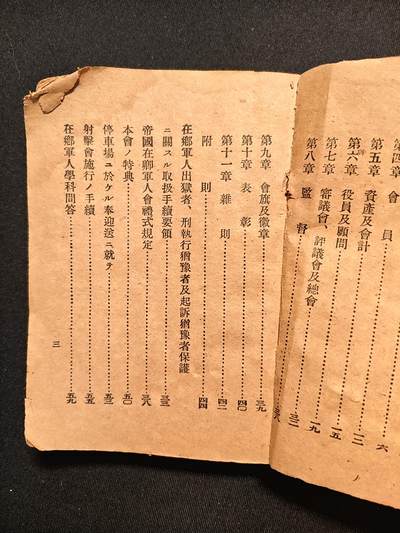 第四章 會員…………六
第五章 資產及會計…………一二
第六章 役員及顧問…………一五
第七章 審議會、評議會及總會…………一九
第八章 監督…………三二
第九章 會旗及徽章…………三九
第十章 表彰…………四〇
第十一章 雜則…………四二
附則…………四四
在鄉軍人出獄者、刑執行猶豫者及起訴猶豫者保護
ニ關スル取扱手續要領…………三三
帝國在鄉軍人會禮式規定…………三八
本會ノ特典…………五〇
停車場ニ於ケル奉迎送ニ就テ…………五三
射擊會施行ノ手續…………五五
在鄉軍人學科問答…………五九
三